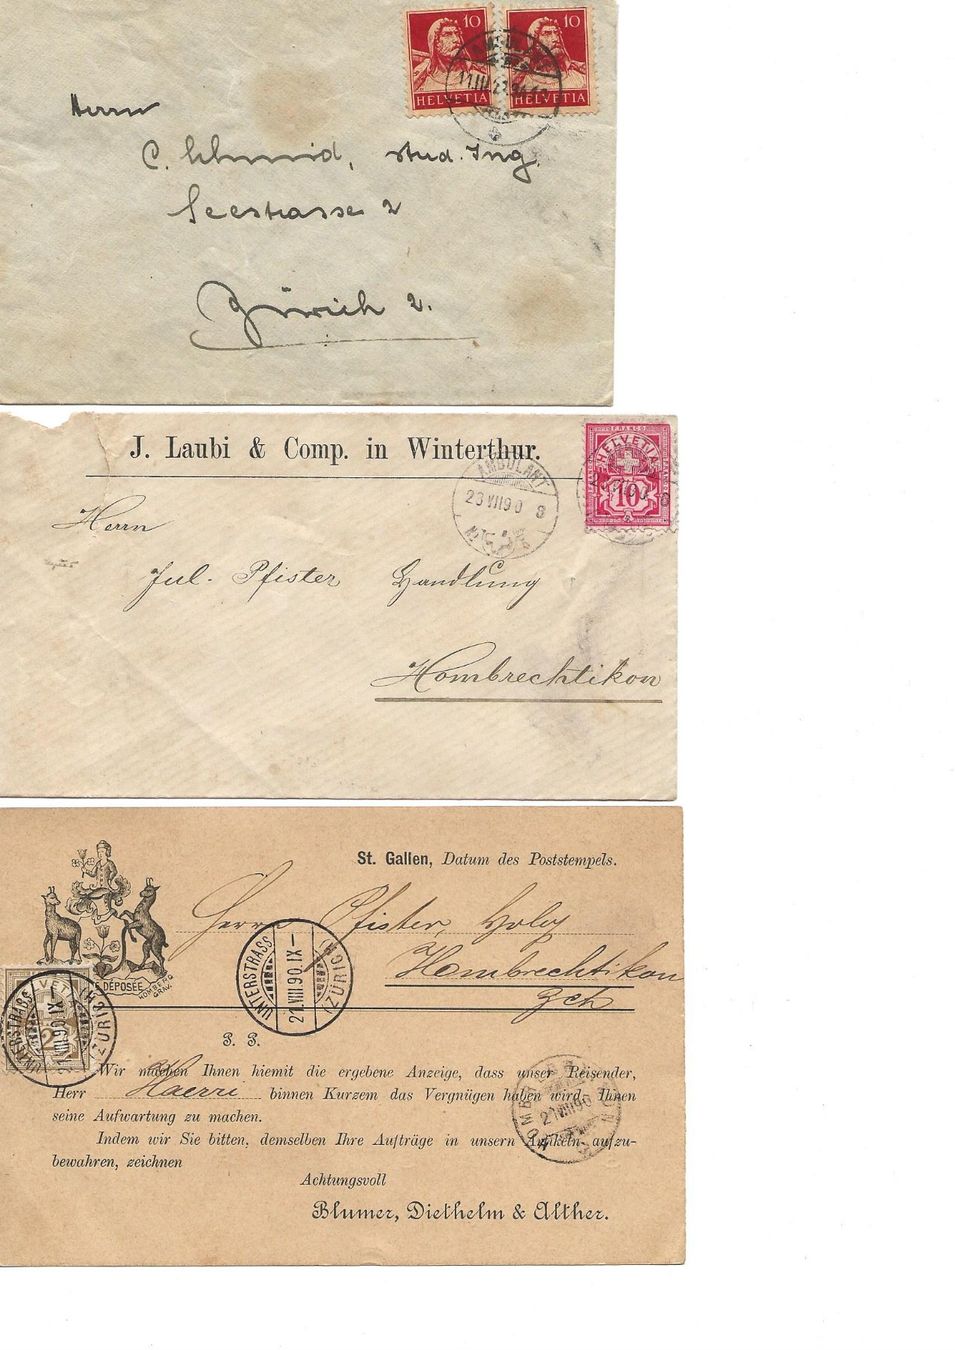 10 10
HELVETIA HELVETIA
Herrn
C. Schmid, stud. Ing.
Seestrasse 2
Zürich 2.
J. Laubi & Comp. in Winterthur.
FRANCO
HELVETIA
10
AMBULANT
23 VII 90 8
Herrn
Jul. Pfister Handlung
Hombrechtikon
St. Gallen, Datum des Poststempels.
Herrn Pfister,
Hombrechtikon
Zch
DÉPOSÉE
HOMBERG
GRAV.
UNTERSTRASS
21.VIII.90.IX–
(ZÜRICH)
UNTERSTRASS
21.VIII.90.IX–
(ZÜRICH)
2
P. P.
Wir machen Ihnen hiemit die ergebene Anzeige, dass unser Reisender,
Herr Haerri binnen Kurzem das Vergnügen haben wird, Ihnen
seine Aufwartung zu machen.
Indem wir Sie bitten, demselben Ihre Aufträge in unsern Artikeln aufzu-
bewahren, zeichnen
Achtungsvoll
Blumer, Diethelm & Alther.
HOMBRECHTIKON
21 VIII 90